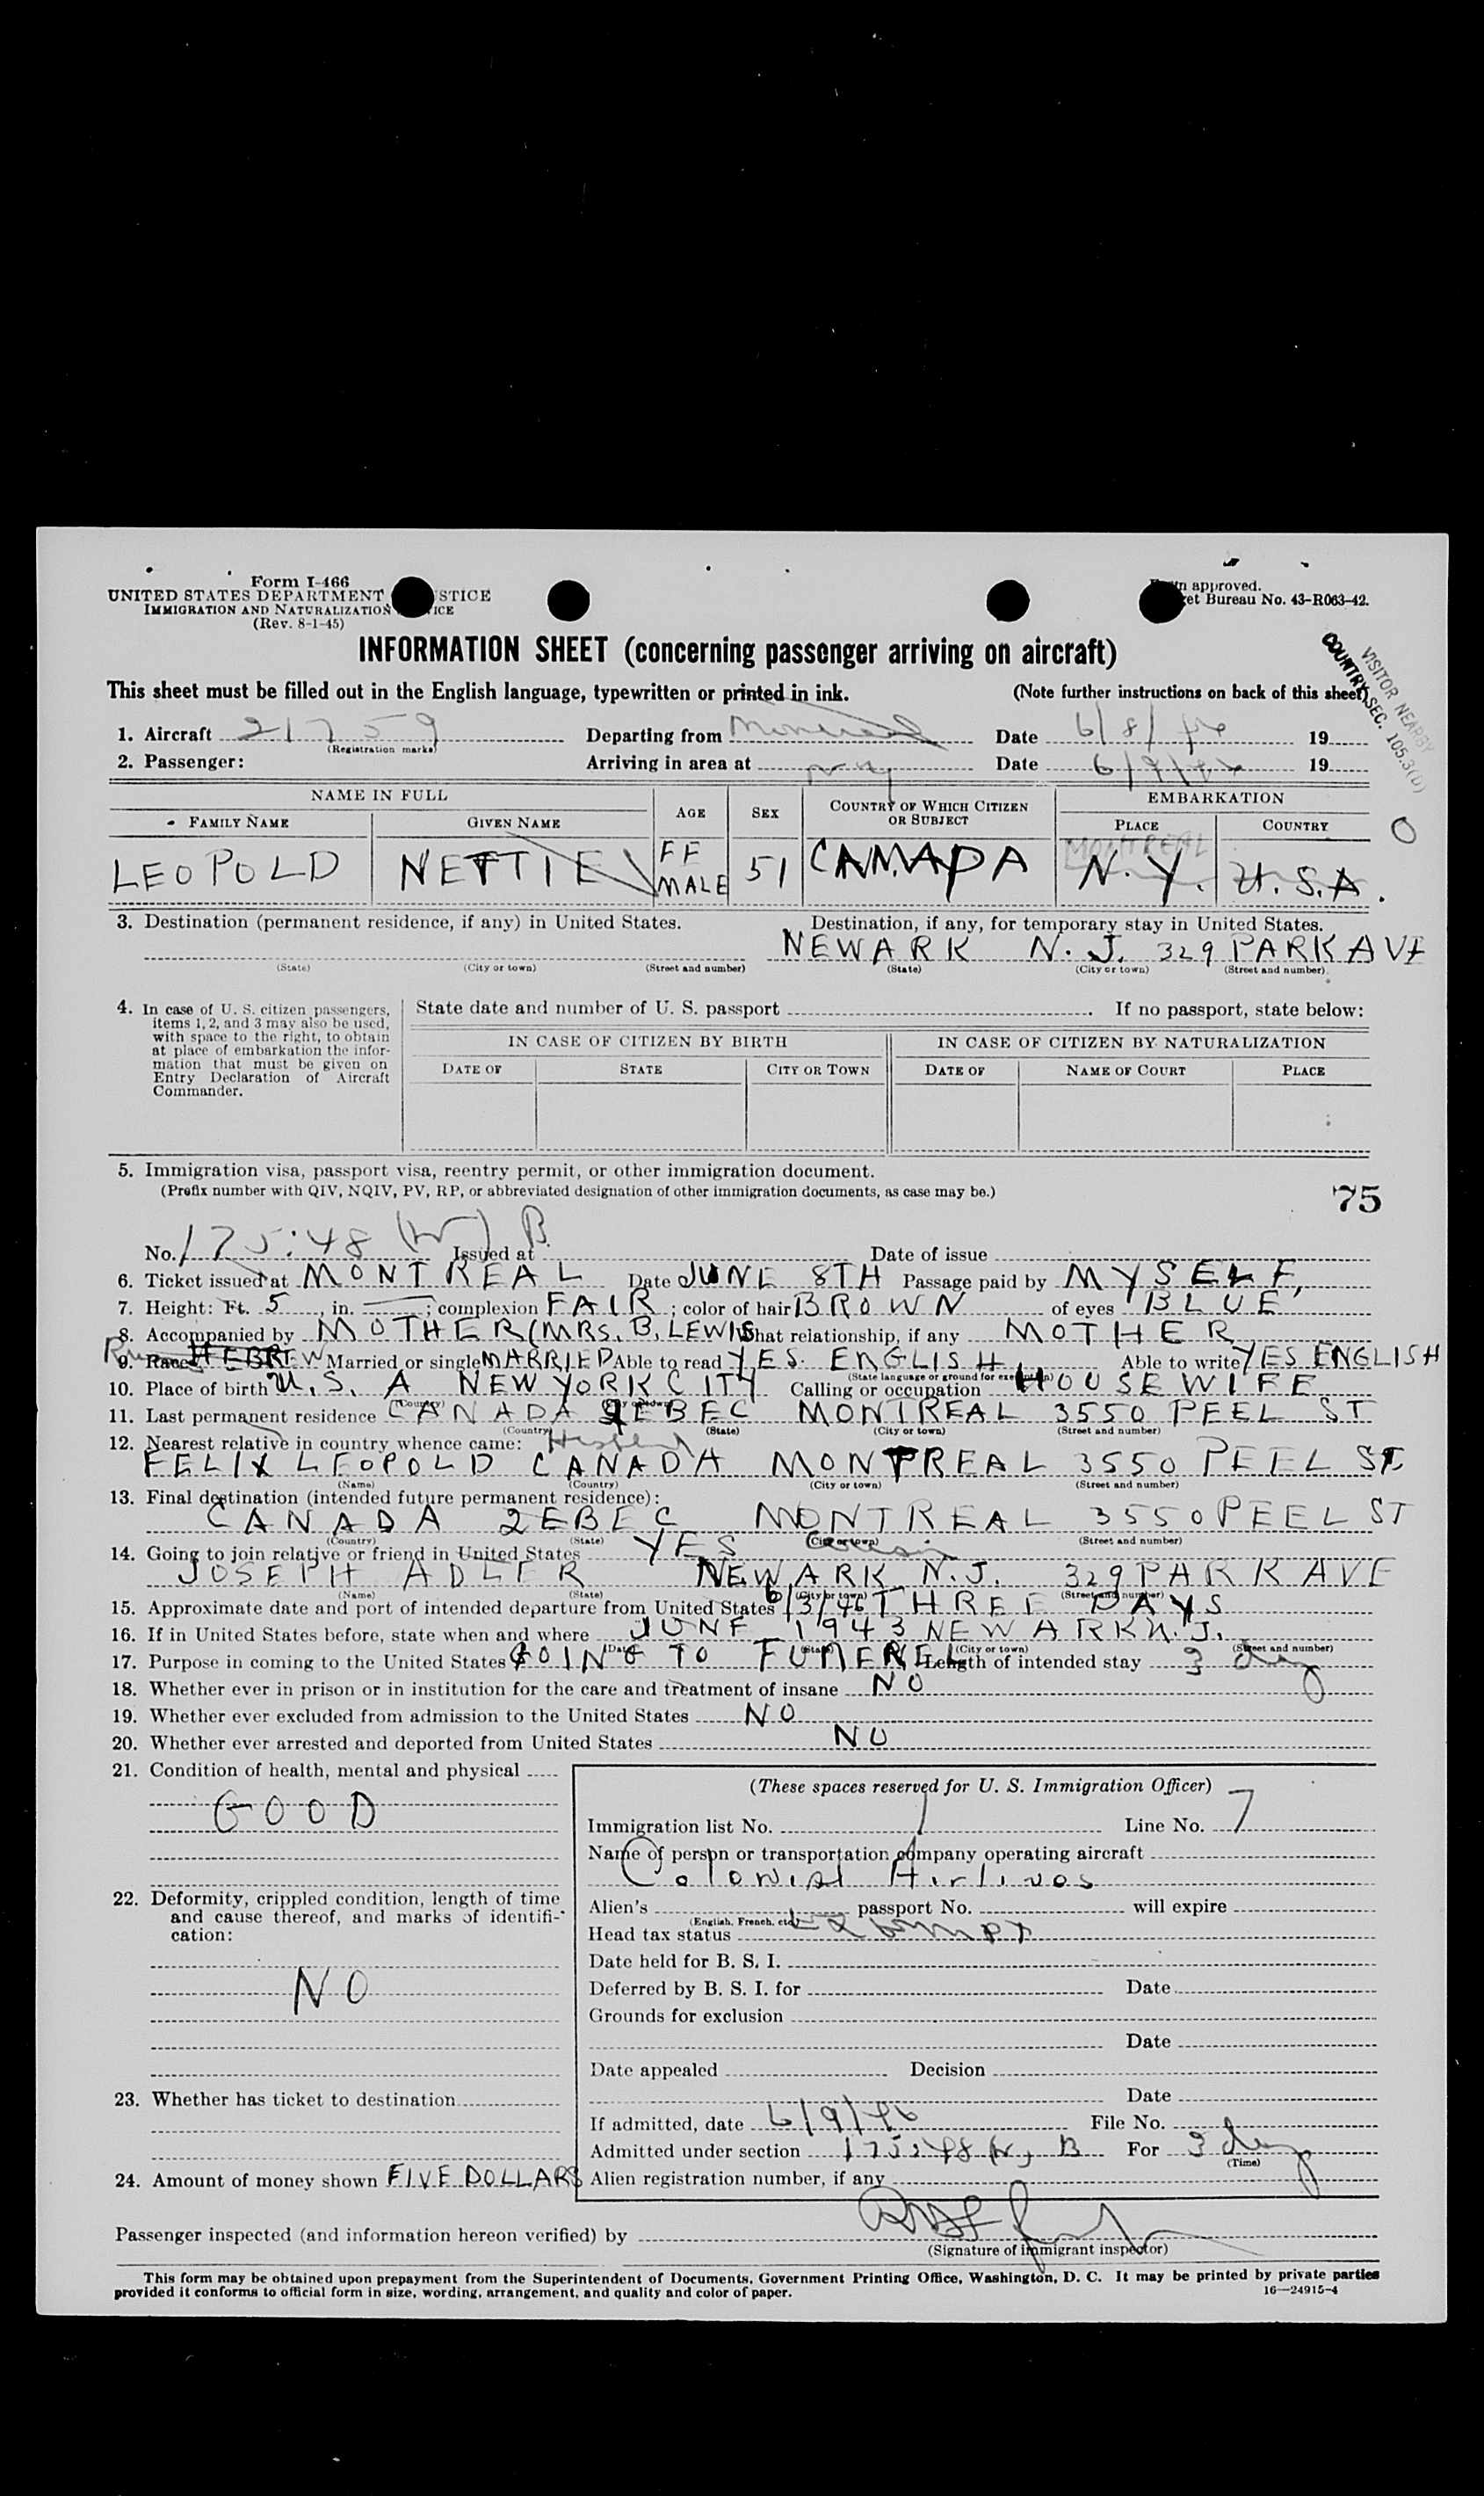 Form I-466
UNITED STATES DEPARTMENT STICE
IMMIGRATION AND NATURALIZATION ICE
(Rev. 8-1-45)
n approved.
et Bureau No. 43-R063-42.
INFORMATION SHEET (concerning passenger arriving on aircraft)
This sheet must be filled out in the English language, typewritten or printed in ink. (Note further instructions on back of this sheet)
VISITOR NEARBY
COUNTRY SEC. 105.3(b)
1. Aircraft 21759 Departing from Montreal Date 6/8/46 19
(Registration marks)
2. Passenger: Arriving in area at Date 6/9/46 19
NAME IN FULL AGE SEX COUNTRY OF WHICH CITIZEN OR SUBJECT EMBARKATION
FAMILY NAME GIVEN NAME PLACE COUNTRY
MONTREAL
LEOPOLD NETTIE FE MALE 51 CANADA N.Y. U.S.A. O
3. Destination (permanent residence, if any) in United States. Destination, if any, for temporary stay in United States.
NEWARK N.J. 329 PARK AVE
(State) (City or town) (Street and number) (State) (City or town) (Street and number)
4. In case of U. S. citizen passengers, items 1, 2, and 3 may also be used, with space to the right, to obtain at place of embarkation the information that must be given on Entry Declaration of Aircraft Commander.
State date and number of U. S. passport . If no passport, state below:
IN CASE OF CITIZEN BY BIRTH IN CASE OF CITIZEN BY NATURALIZATION
DATE OF STATE CITY OR TOWN DATE OF NAME OF COURT PLACE
5. Immigration visa, passport visa, reentry permit, or other immigration document.
(Prefix number with QIV, NQIV, PV, RP, or abbreviated designation of other immigration documents, as case may be.) 75
No. 175:48 B. Issued at Date of issue
6. Ticket issued at MONTREAL Date JUNE 8TH Passage paid by MYSELF,
7. Height: Ft. 5, in. — ; complexion FAIR ; color of hair BROWN of eyes BLUE
8. Accompanied by MOTHER (MRS. B. LEWIS What relationship, if any MOTHER
9. Race HEBREW Married or single MARRIED Able to read YES. ENGLISH Able to write YES ENGLISH
(State language or ground for exemption)
10. Place of birth U.S. A NEW YORK CITY Calling or occupation HOUSEWIFE
(Country) (City or town)
11. Last permanent residence CANADA QEBEC MONTREAL 3550 PEEL ST
(Country) (State) (City or town) (Street and number)
12. Nearest relative in country whence came: Husband
FELIX LEOPOLD CANADA MONTREAL 3550 PEEL ST
(Name) (Country) (City or town) (Street and number)
13. Final destination (intended future permanent residence):
CANADA QEBEC MONTREAL 3550 PEEL ST
(Country) (State) (City or town) (Street and number)
14. Going to join relative or friend in United States YES cousin
JOSEPH ADLER NEWARK N.J. 329 PARK AVE
(Name) (State) (City or town) (Street and number)
15. Approximate date and port of intended departure from United States 6/13/46 THREE DAYS
16. If in United States before, state when and where JUNE 1943 NEWARK N.J.
(Date) (State) (City or town) (Street and number)
17. Purpose in coming to the United States GOING TO FUNEREL Length of intended stay 3 days
18. Whether ever in prison or in institution for the care and treatment of insane NO
19. Whether ever excluded from admission to the United States NO
20. Whether ever arrested and deported from United States NO
21. Condition of health, mental and physical
GOOD
22. Deformity, crippled condition, length of time and cause thereof, and marks of identification:
NO
23. Whether has ticket to destination
24. Amount of money shown FIVE DOLLARS
(These spaces reserved for U. S. Immigration Officer)
Immigration list No. 1 Line No. 7
Name of person or transportation company operating aircraft
Colonial Airlines
Alien's passport No. will expire
(English, French, etc.)
Head tax status Exempt
Date held for B. S. I.
Deferred by B. S. I. for Date
Grounds for exclusion
Date
Date appealed Decision
Date
If admitted, date 6/9/46 File No.
Admitted under section 175:48 B For 3 days
(Time)
Alien registration number, if any
Passenger inspected (and information hereon verified) by
(Signature of immigrant inspector)
This form may be obtained upon prepayment from the Superintendent of Documents, Government Printing Office, Washington, D. C. It may be printed by private parties
provided it conforms to official form in size, wording, arrangement, and quality and color of paper. 16—24915-4